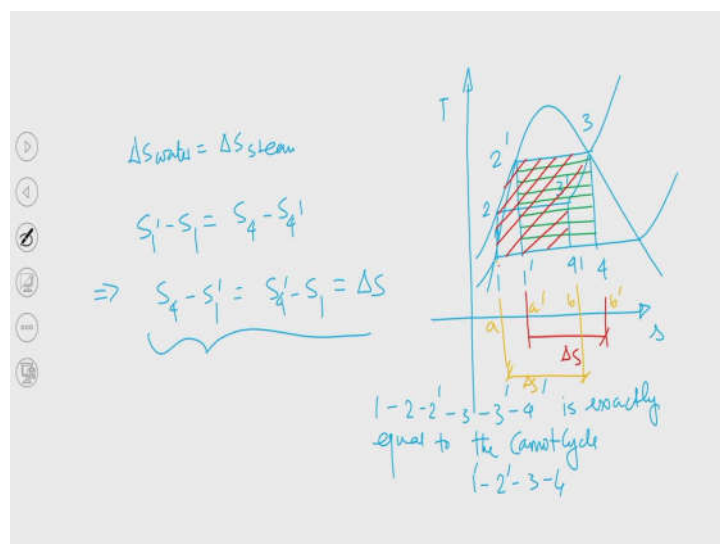 ΔSwater = ΔSsteam
S1' - S1 = S4 - S4'
⇒ S4 - S1' = S4' - S1 = ΔS
T
3
2'
3'
2
1
1'
4'
4
a
a'
b
b'
s
ΔS
ΔS'
1-2-2'-3'-3'-4' is exactly
equal to the Carnot Cycle
1'-2'-3-4